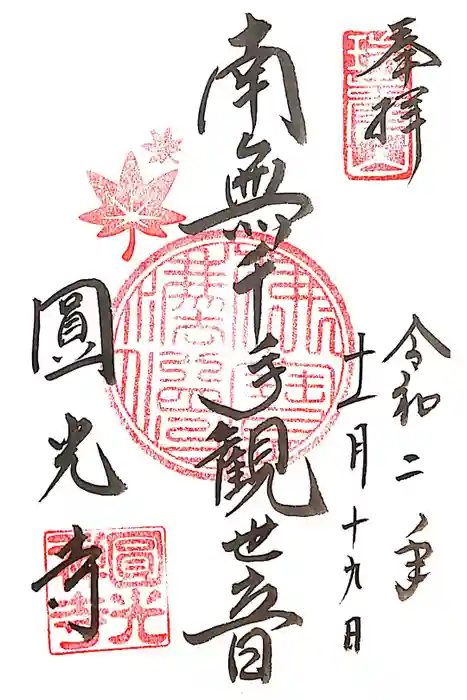 奉拝
令和二年
十一月十九日
南無千手観世音
圓光寺
圓光
禅寺